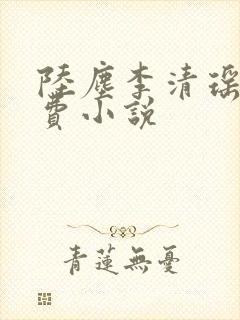 陸塵李清瑤
費小說
青蓮無憂